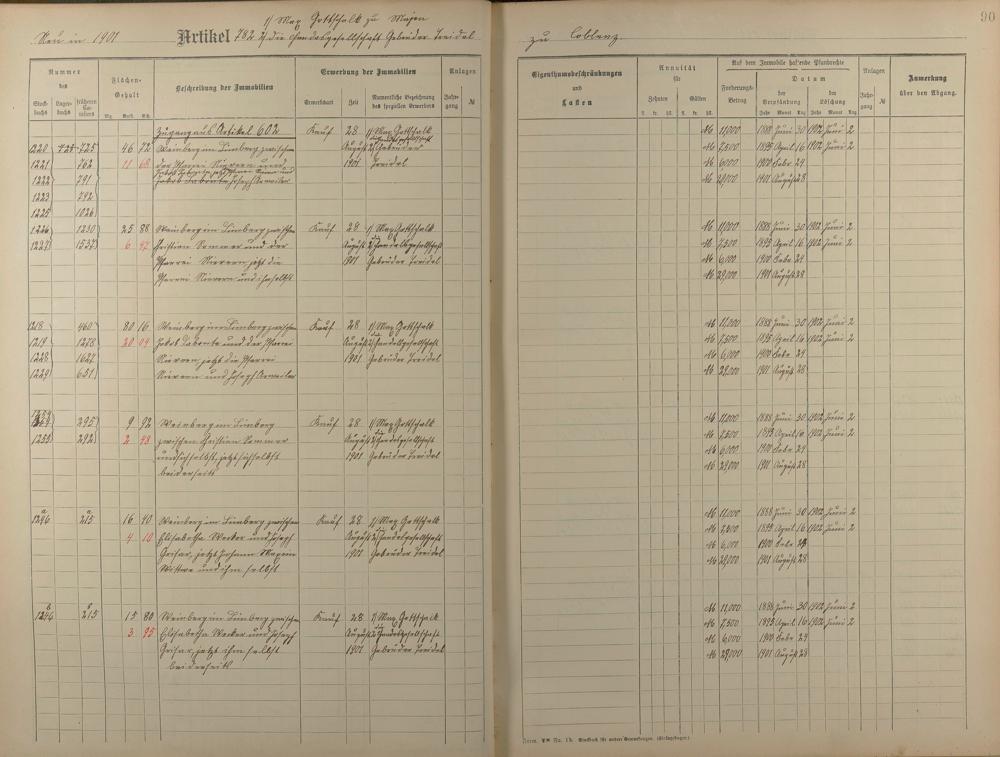 90
1) Max Gottschalk zu Mayen
Neu in 1901 Artikel 782 2) die Handelsgesellschaft Gebrüder Treidel zu Coblenz
Nummer des
Stockbuchs
Lagerbuchs
früheren
Flächen-Gehalt
Mg. Ruth. Sch.
Beschreibung der Immobilien
Erwerbung der Immobilien
Erwerbsart
Zeit
Namentliche Bezeichnung des speziellen Erwerbers
Anlagen
Jahrgang
№
Eigenthumsbeschränkungen und Lasten
Annuität für
Zehnten
Gülten
fl. kr. hll. fl. kr. hll.
Auf dem Immobile haftende Pfandrechte
Forderungs-Betrag
Datum
der Verpfändung
der Löschung
Jahr Monat Tag Jahr Monat Tag
Anlagen
Jahrgang
№
Anmerkung über den Abgang.
Zugang aus Artikel 602
1220 725 46 72 Weinberg im Limberg zwischen
1221 762 11 68 der Pfarrei Nievern und
1222 791
1223 792
1225 1026
Kauf 28 August 1901 1) Max Gottschalk
2) Gebrüder
Treidel
M 11,000 1888 Juni 30 1902 Juni 2
M 7,500 1895 April 16 1902 Juni 2
M 6000 1900 Febr 24
M 29,000 1901 August 28
1226 1230 25 88 Weinberg im Limberg zwischen
1227 1537 6 47 Christian Sommer und der
Pfarrei Nievern jetzt die
Pfarrei Nievern und ihm selbst
Kauf 28 August 1901 1) Max Gottschalk
2) Handelsgesellschaft
Gebrüder Treidel
M 11,000 1888 Juni 30 1902 Juni 2
M 7,500 1895 April 16 1902 Juni 2
M 6,000 1900 Febr 24
M 29,000 1901 August 28
1218 460 80 16 Weinberg im Limberg zwischen
1219 1278 20 04 Jakob Labonte und der Pfarrei
1228 1627 Nievern, jetzt die Pfarrei
1229 651 Nievern und Joseph
Kauf 28 August 1901 1) Max Gottschalk
2) Handelsgesellschaft
Gebrüder Treidel
M 11,000 1888 Juni 30 1902 Juni 2
M 7,500 1895 April 16 1902 Juni 2
M 6,000 1900 Febr 24
M 29,000 1901 August 28
1254
295 9 92 Weinberg im Limberg
1255 292 2 48 zwischen Christian Sommer
und sich selbst, jetzt sich selbst
beiderseits
Kauf 28 August 1901 1) Max Gottschalk
2) Handelsgesellschaft
Gebrüder Treidel
M 11,000 1888 Juni 30 1902 Juni 2
M 7,500 1895 April 16 1902 Juni 2
M 6,000 1900 Febr 24
M 29,000 1901 August 28
a a
1246 215 16 40 Weinberg im Limberg zwischen
4 10 Elisabetha Becker und Joseph
Grisar, jetzt Johann
Wittwe und ihm selbst
Kauf 28 August 1901 1) Max Gottschalk
2) Handelsgesellschaft
Gebrüder Treidel
M 11,000 1888 Juni 30 1902 Juni 2
M 7,500 1895 April 16 1902 Juni 2
M 6,000 1900 Febr 24
M 29,000 1901 August 28
b b
1246 215 15 80 Weinberg im Limberg zwischen
3 95 Elisabetha Becker und Joseph
Grisar, jetzt ihm selbst
beiderseits
Kauf 28 August 1901 1) Max Gottschalk
2) Handelsgesellschaft
Gebrüder Treidel
M 11,000 1888 Juni 30 1902 Juni 2
M 7,500 1895 April 16 1902 Juni 2
M 6,000 1900 Febr 24
M 29,000 1901 August 28